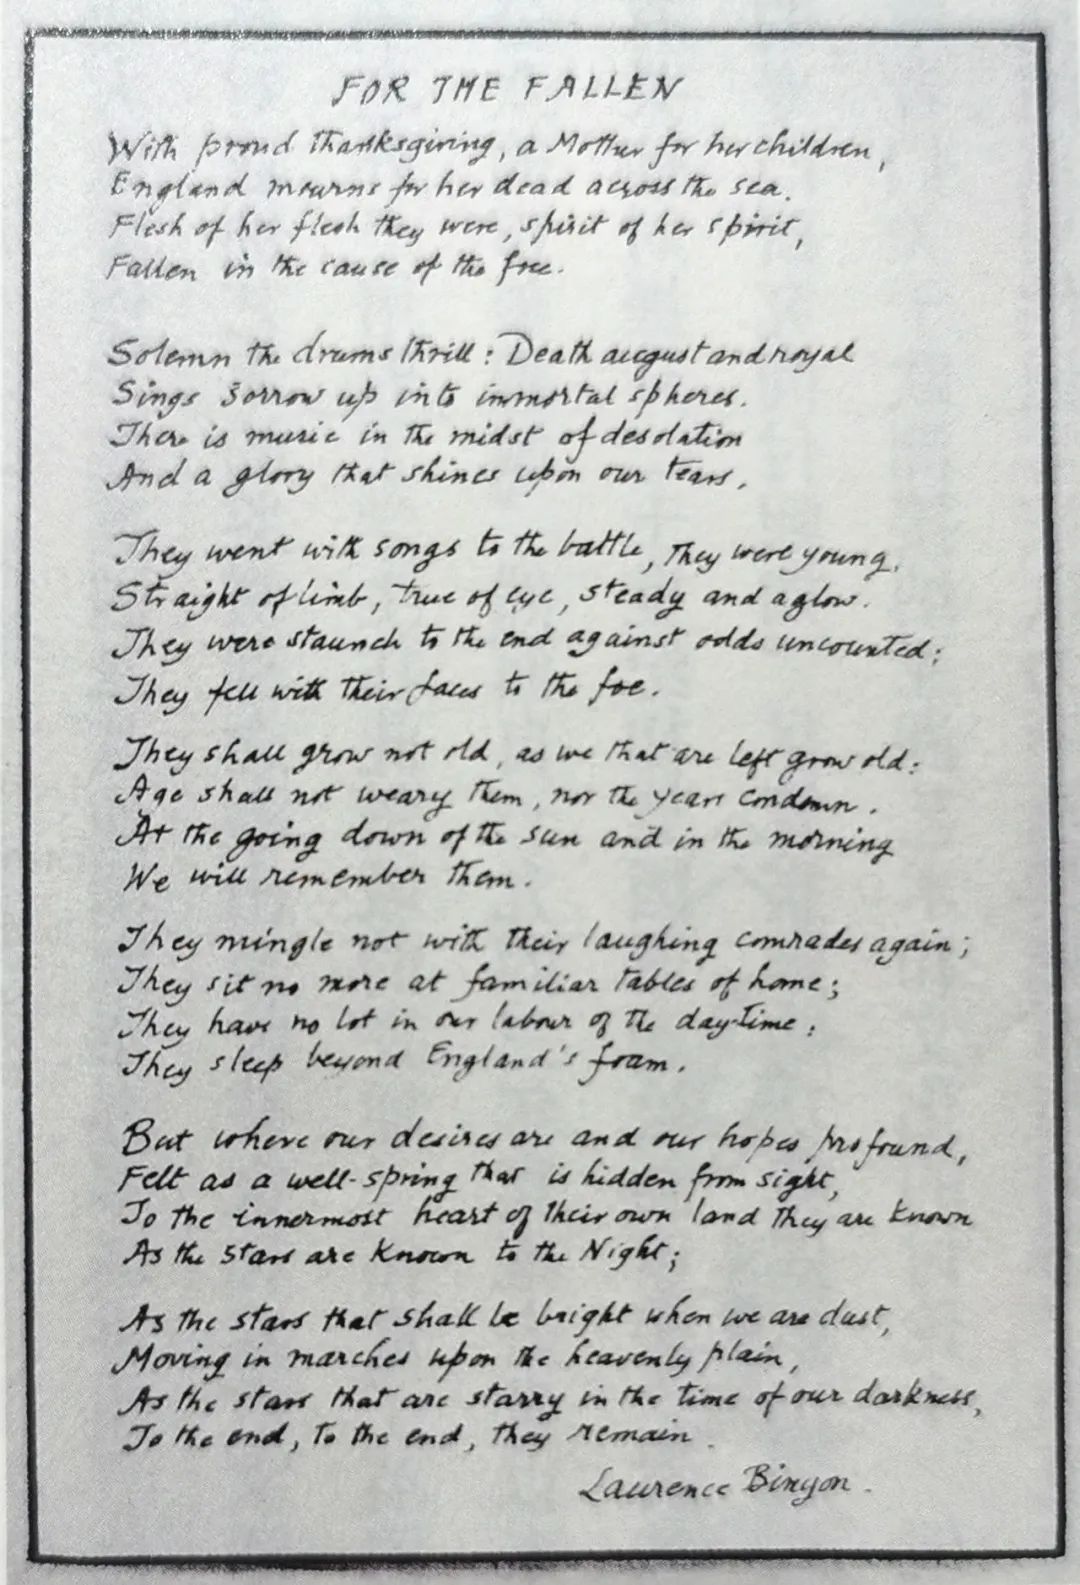 FOR THE FALLEN
With proud thanksgiving, a Mother for her children,
England mourns for her dead across the sea.
Flesh of her flesh they were, spirit of her spirit,
Fallen in the cause of the free.
Solemn the drums thrill: Death august and royal
Sings sorrow up into immortal spheres.
There is music in the midst of desolation
And a glory that shines upon our tears.
They went with songs to the battle, They were young,
Straight of limb, true of eye, steady and aglow.
They were staunch to the end against odds uncounted;
They fell with their faces to the foe.
They shall grow not old, as we that are left grow old:
Age shall not weary them, nor the years condemn.
At the going down of the sun and in the morning
We will remember them.
They mingle not with their laughing comrades again;
They sit no more at familiar tables of home;
They have no lot in our labour of the day-time;
They sleep beyond England's foam.
But where our desires are and our hopes profound,
Felt as a well-spring that is hidden from sight,
To the innermost heart of their own land they are known
As the stars are known to the Night;
As the stars that shall be bright when we are dust,
Moving in marches upon the heavenly plain,
As the stars that are starry in the time of our darkness,
To the end, to the end, they remain.
Laurence Binyon.